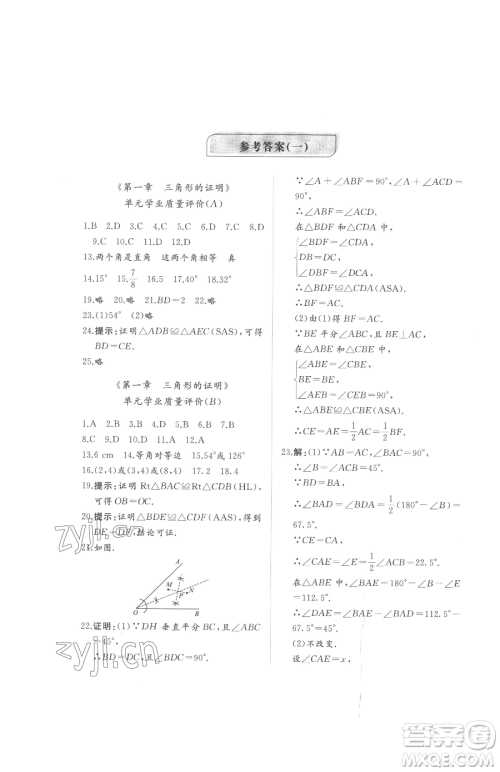 参考答案(一)
《第一章 三角形的证明》
单元学业质量评价(A)
1.B 2.D 3.C 4.D 5.C 6.C 7.D 8.D
9.C 10.D 11.C 12.D
13.两个角是直角 这两个角相等 真
14.15° 15.7/8 16.3 17.40° 18.32°
19.略 20.略 21.略 22.BD=2 22.略
23.(1)54° (2)略
24.提示:证明△ADB≌△AEC(SAS),可得
BD=CE.
25.略
《第一章 三角形的证明》
单元学业质量评价(B)
1.A 2.D 3.C 4.C 5.B 6.C 7.C 8.D
9.C 10.D 11.D 12.C
13.6 cm 14.等角对等边 15.54°或126°
16.(2,4)或(3,4)或(8,4) 17.2 18.4
19.提示:证明Rt△BAC≌Rt△CDB(HL),可得
OB=OC.
20.提示:证明△BDE≌△CDF(AAS),得出
DE=DF,结论可证.
21.如图.
A
M
P
N
O
B
22.证明:(1)∵DH垂直平分BC,且∠ABC
=45°,
∴BD=DC,且∠BDC=90°.
∵∠A+∠ABF=90°,∠A+∠ACD=90°,
∴∠ABF=∠ACD.
在△BDF和△CDA中,
∠BDF=∠CDA
DB=DC
∠ABF=∠ACD
∴△BDF≌△CDA(ASA).
∴BF=AC.
(2)由(1)得BF=AC.
∵BE平分∠ABC,且BE⊥AC,
在△ABE和△CBE中,
∠ABE=∠CBE
BE=BE
∠AEB=∠CEB
∴△ABE≌△CBE(ASA).
∴CE=AE=1/2AC=1/2BF.
23.解:(1)∵AB=AC,∠BAC=90°,
∴∠B=∠ACB=45°.
∵BD=BA,
∴∠BAD=∠BDA=1/2(180°-∠B)=
67.5°.
∵CE=CA,
∴∠CAE=∠E=1/2∠ACB=22.5°.
∴∠BAE=180°-∠B-∠E=112.5°.
∴∠DAE=∠BAE-∠BAD=112.5°-
67.5°=45°.
(2)不改变.
设∠CAE=x,
zyjl.cn
答案圈
MXQE.COM